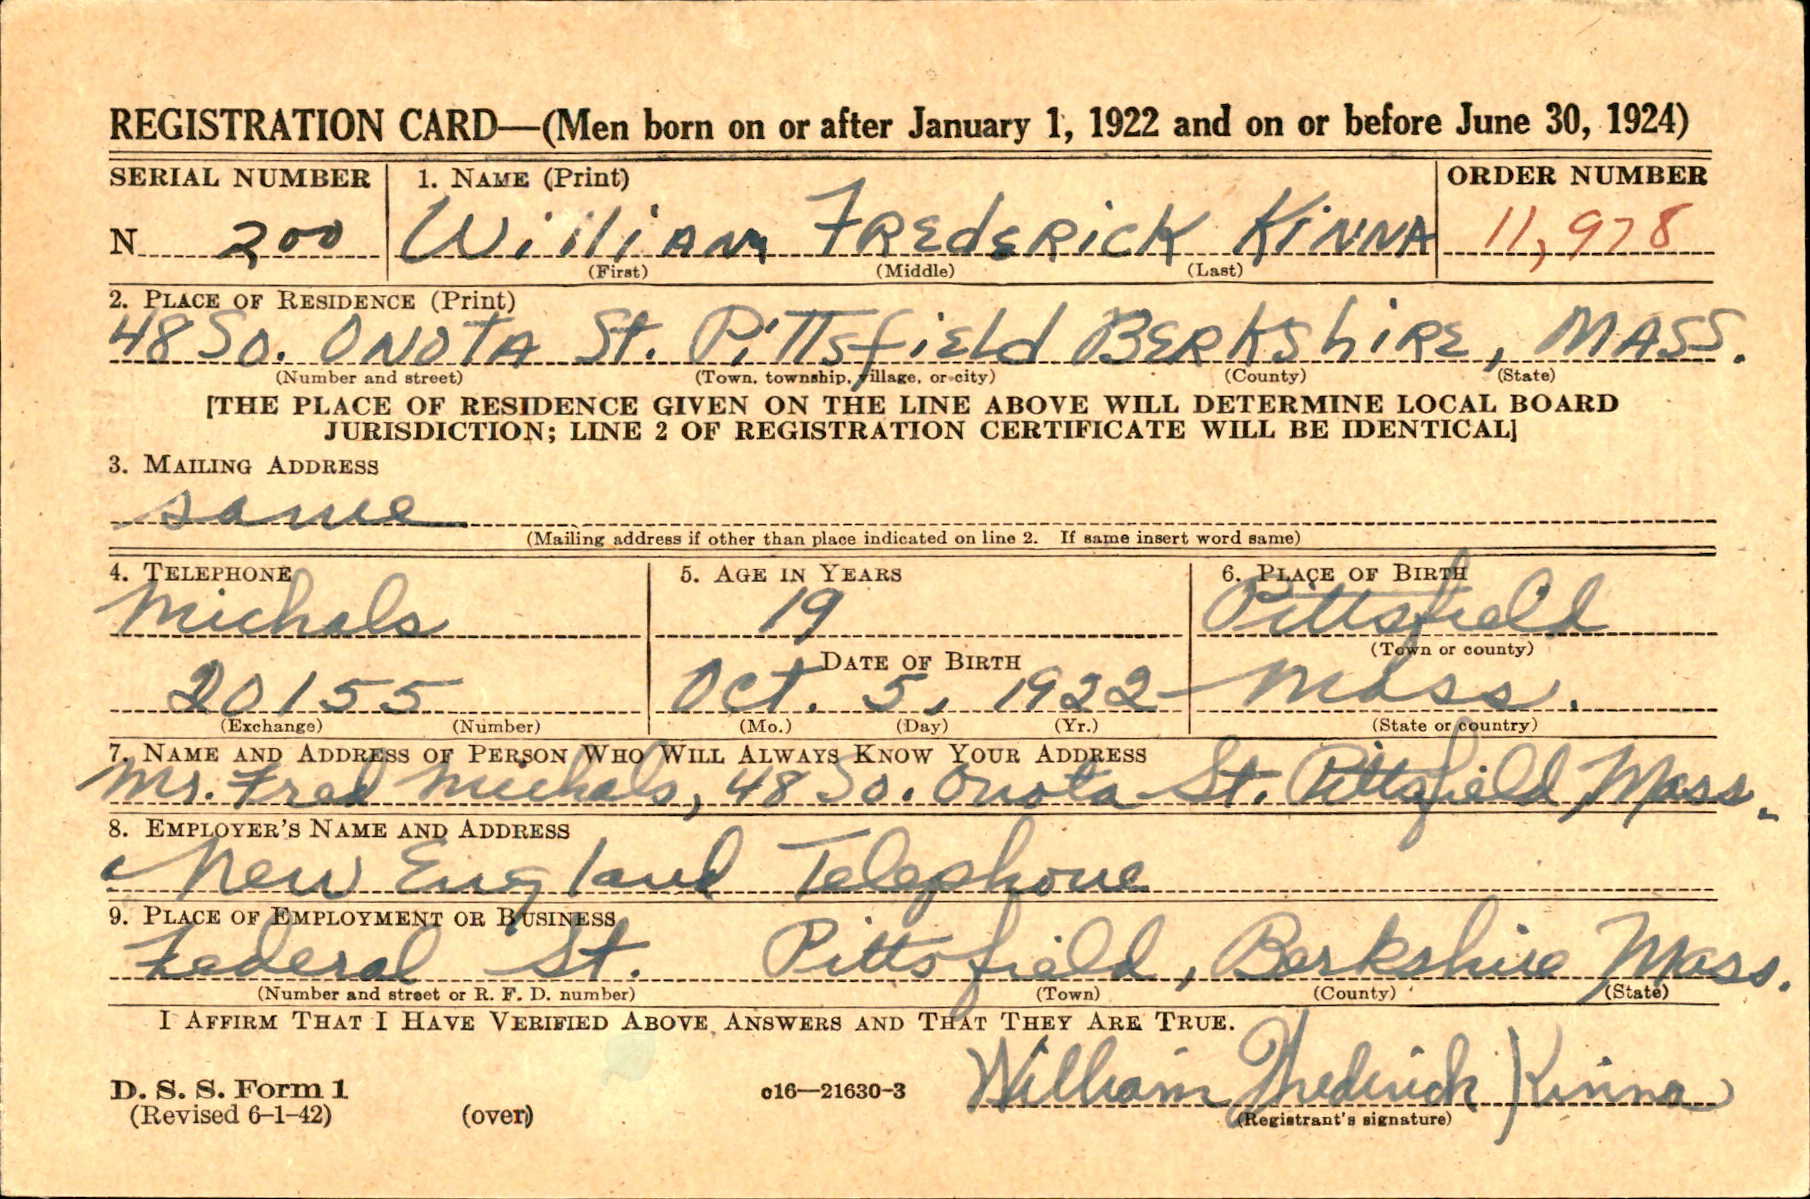 REGISTRATION CARD—(Men born on or after January 1, 1922 and on or before June 30, 1924)
SERIAL NUMBER 1. NAME (Print) ORDER NUMBER
N 200 William Frederick Kinna 11,978
(First) (Middle) (Last)
2. PLACE OF RESIDENCE (Print)
48 So. Onota St. Pittsfield Berkshire, Mass.
(Number and street) (Town, township, village, or city) (County) (State)
[THE PLACE OF RESIDENCE GIVEN ON THE LINE ABOVE WILL DETERMINE LOCAL BOARD
JURISDICTION; LINE 2 OF REGISTRATION CERTIFICATE WILL BE IDENTICAL]
3. MAILING ADDRESS
same
(Mailing address if other than place indicated on line 2. If same insert word same)
4. TELEPHONE 5. AGE IN YEARS 6. PLACE OF BIRTH
Michals 19 Pittsfield
(Town or county)
DATE OF BIRTH
20155 Oct. 5, 1922 Mass.
(Exchange) (Number) (Mo.) (Day) (Yr.) (State or country)
7. NAME AND ADDRESS OF PERSON WHO WILL ALWAYS KNOW YOUR ADDRESS
Mr. Fred Michals, 48 So. Onota St. Pittsfield Mass.
8. EMPLOYER'S NAME AND ADDRESS
New England Telephone
9. PLACE OF EMPLOYMENT OR BUSINESS
Federal St. Pittsfield, Berkshire Mass.
(Number and street or R. F. D. number) (Town) (County) (State)
I AFFIRM THAT I HAVE VERIFIED ABOVE ANSWERS AND THAT THEY ARE TRUE.
D. S. S. Form 1 c16—21630-3 William Frederick Kinna
(Revised 6-1-42) (over) (Registrant's signature)